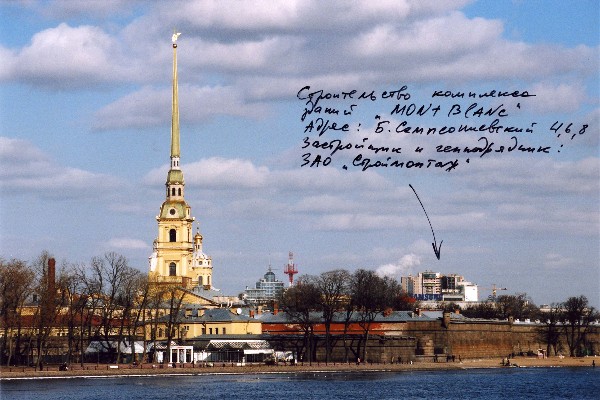 Строительство комплекса
зданий „MONT BLANC“
Адрес: Б. Сампсониевский 4,6,8
Застройщик и генподрядчик:
ЗАО „Строймонтаж“